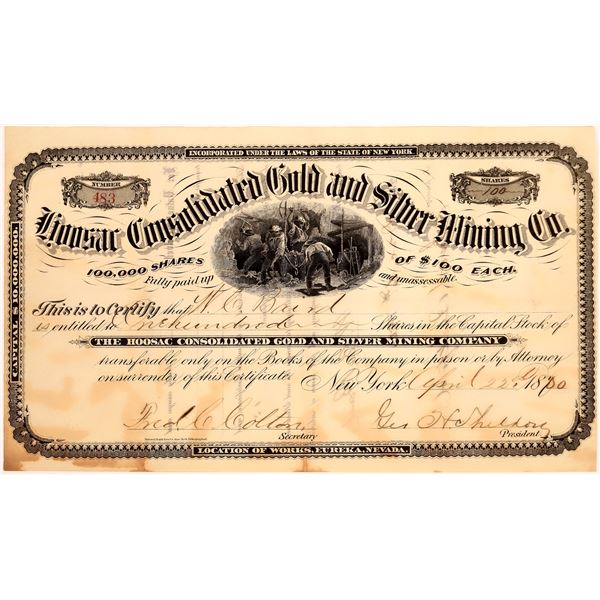 INCORPORATED UNDER THE LAWS OF THE STATE OF NEW YORK.
NUMBER
483
SHARES
100
Hoosac Consolidated Gold and Silver Mining Co.
100,000 SHARES OF $100 EACH.
Fully paid up and unassessable.
CAPITAL $10,000,000.
This is to Certify that W. C. Baird
is entitled to Onehundred Shares in the Capital Stock of
THE HOOSAC CONSOLIDATED GOLD AND SILVER MINING COMPANY
transferable only on the Books of the Company in person or by Attorney
on surrender of this Certificate. New York April 22d 1880
Fred C. Geo. H.
Secretary President
LOCATION OF WORKS, EUREKA, NEVADA.